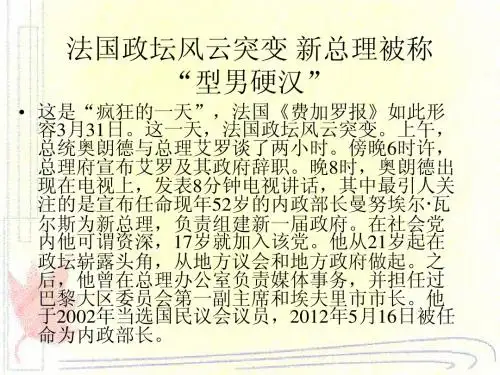 法国政坛风云突变 新总理被称
“型男硬汉”
• 这是“疯狂的一天”，法国《费加罗报》如此形
容3月31日。这一天，法国政坛风云突变。上午，
总统奥朗德与总理艾罗谈了两小时。傍晚6时许，
总理府宣布艾罗及其政府辞职。晚8时，奥朗德出
现在电视上，发表8分钟电视讲话，其中最引人关
注的是宣布任命现年52岁的内政部长曼努埃尔·瓦
尔斯为新总理，负责组建新一届政府。在社会党
内他可谓资深，17岁就加入该党。他从21岁起在
政坛崭露头角，从地方议会和地方政府做起。之
后，他曾在总理办公室负责媒体事务，并担任过
巴黎大区委员会第一副主席和埃夫里市市长。他
于2002年当选国民议会议员，2012年5月16日被任
命为内政部长。